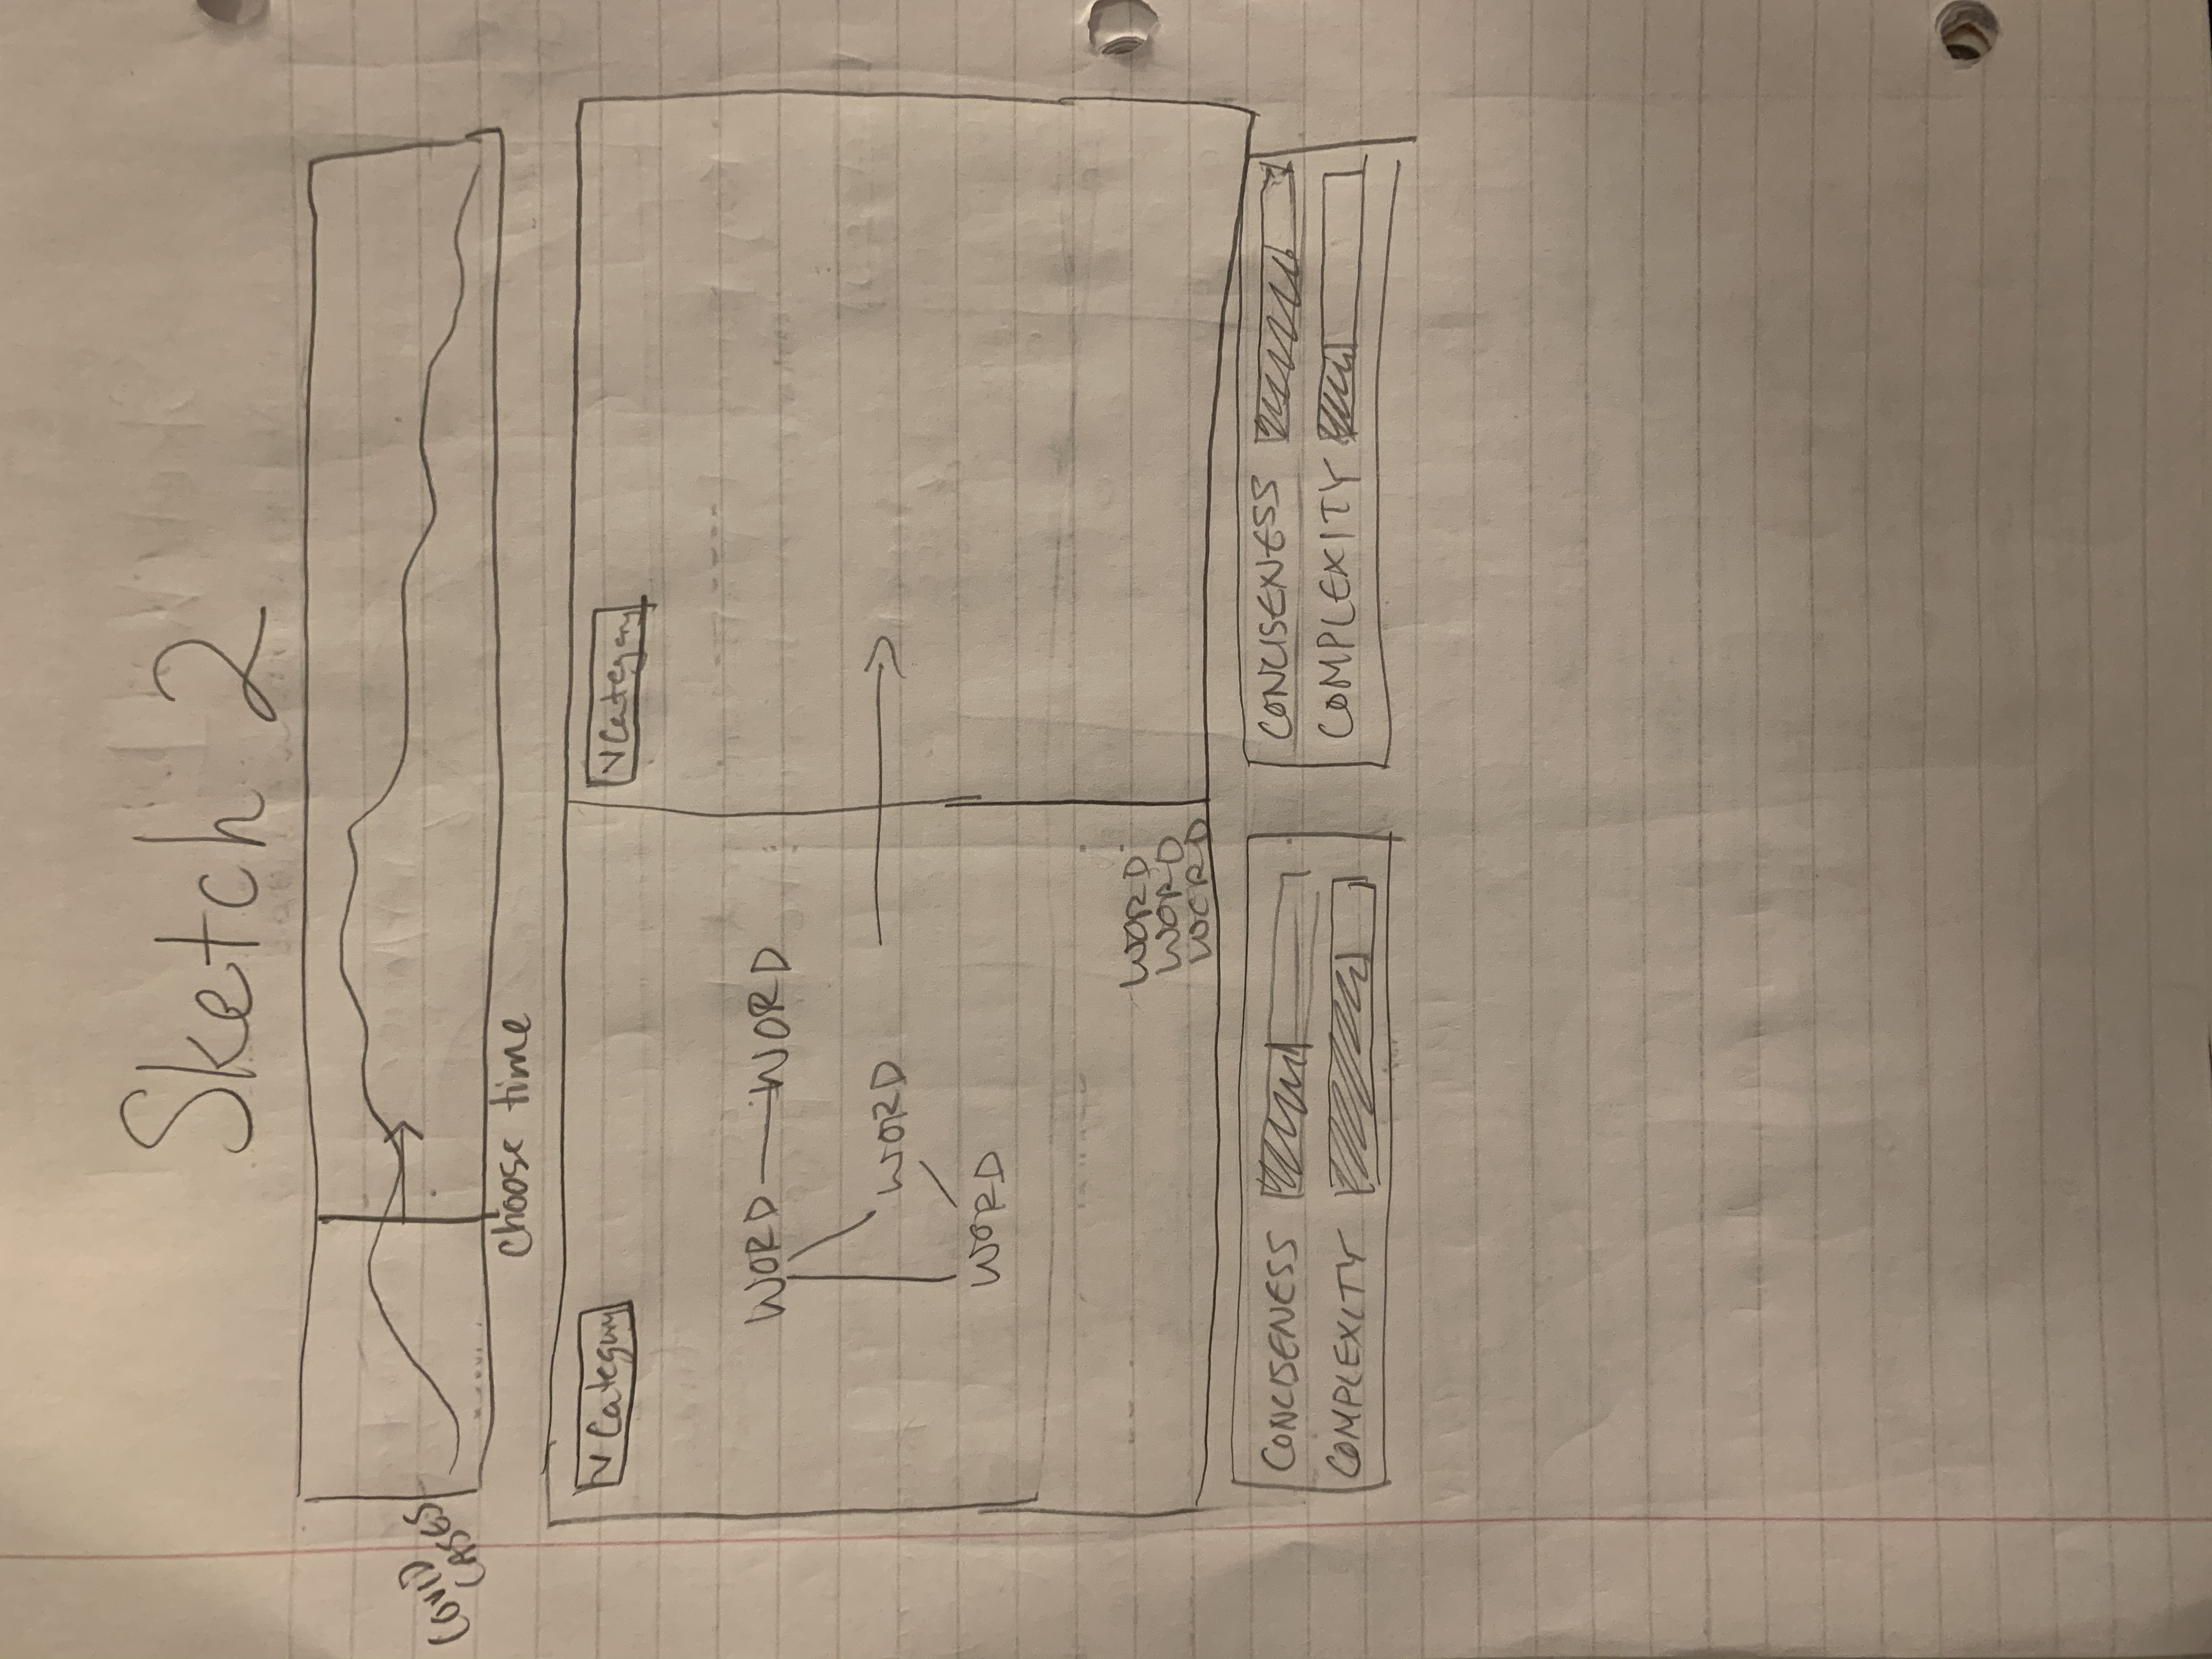 Sketch 2
COVID
CASES
choose time
Category
Category
WORD WORD
WORD
WORD
WORD
WORD
WORD
CONCISENESS
COMPLEXITY
CONCISENESS
COMPLEXITY